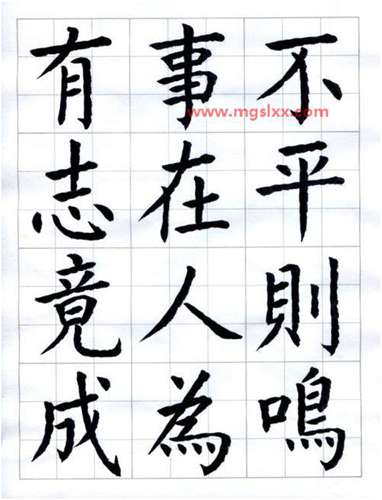 不平則鳴
事在人為
有志竟成
www.mgslxx.com